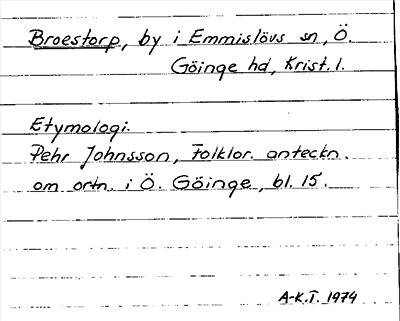 Broestorp, by i Emmislövs sn, Ö.
Göinge hd, Krist. l.
Etymologi.
Pehr Johnsson, Folklor. anteckn.
om ortn. i Ö. Göinge, bl. 15.
A-K.T. 1974